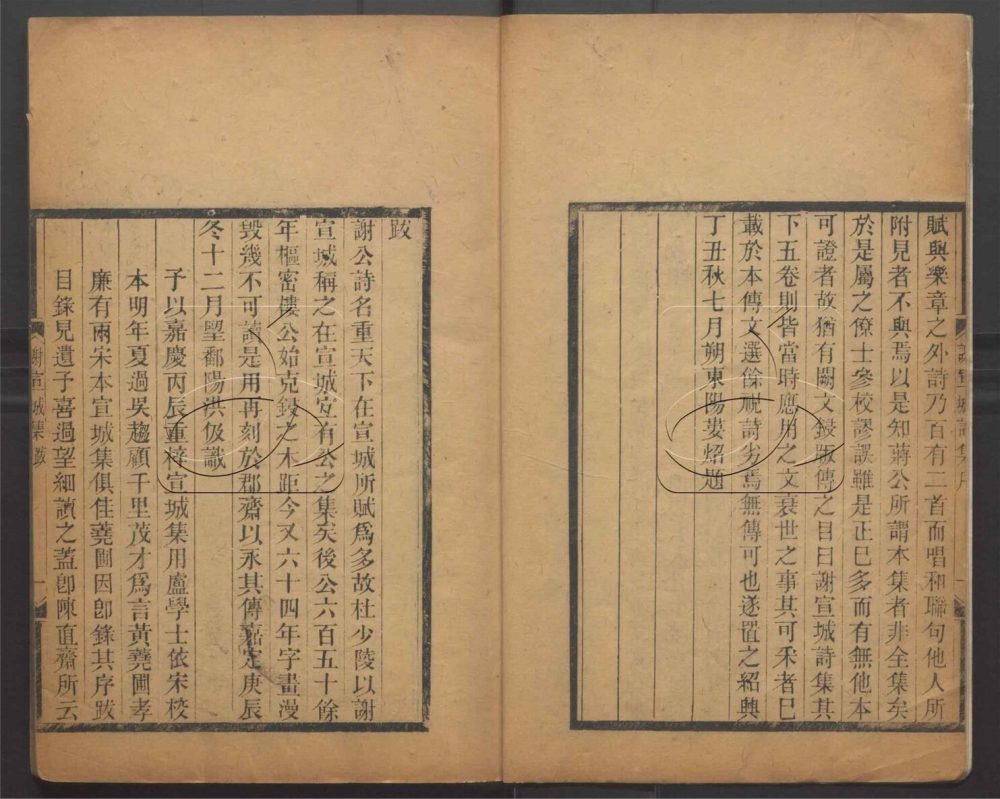 賦與樂章之外詩乃百有二首而唱和聯句他人所
附見者不與焉以是知蔣公所謂本集者非全集矣
於是屬之僚士參校謬誤雖是正已多而有無他本
可證者故猶有闕文錄版傳之目曰謝宣城詩集其
下五卷則皆當時應用之文衰世之事其可采者已
載於本傳文選餘視詩劣焉無傳可也遂置之紹興
丁丑秋七月朔東陽婁炤題
跋
謝公詩名重天下在宣城所賦爲多故杜少陵以謝
宣城稱之在宣城宜有公之集矣後公六百五十餘
年樞密樓公始克鋟之木距今又六十四年字畫漫
毀幾不可讀是用再刻於郡齋以永其傳嘉定庚辰
冬十二月朢鄱陽洪伋識
予以嘉慶丙辰重梓宣城集用盧學士依宋校
本明年夏過吳趨顧千里茂才爲言黃蕘圃孝
廉有兩宋本宣城集俱佳蕘圃因卽錄其序跋
目錄見遺予喜過望細讀之蓋卽陳直齋所云
謝宣城集 跋
一